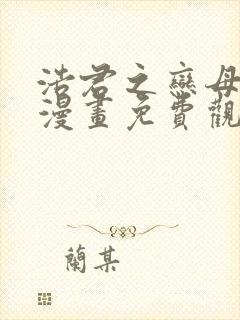 浩君之戀母
漫畫免費觀
蘭某